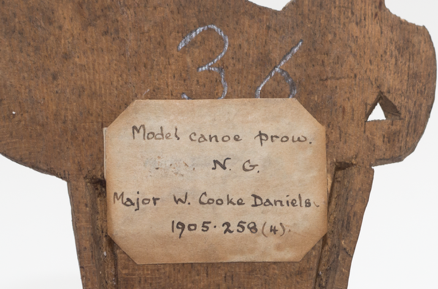 36
Model canoe prow.
N. G.
Major W. Cooke Daniels.
1905.258(4).